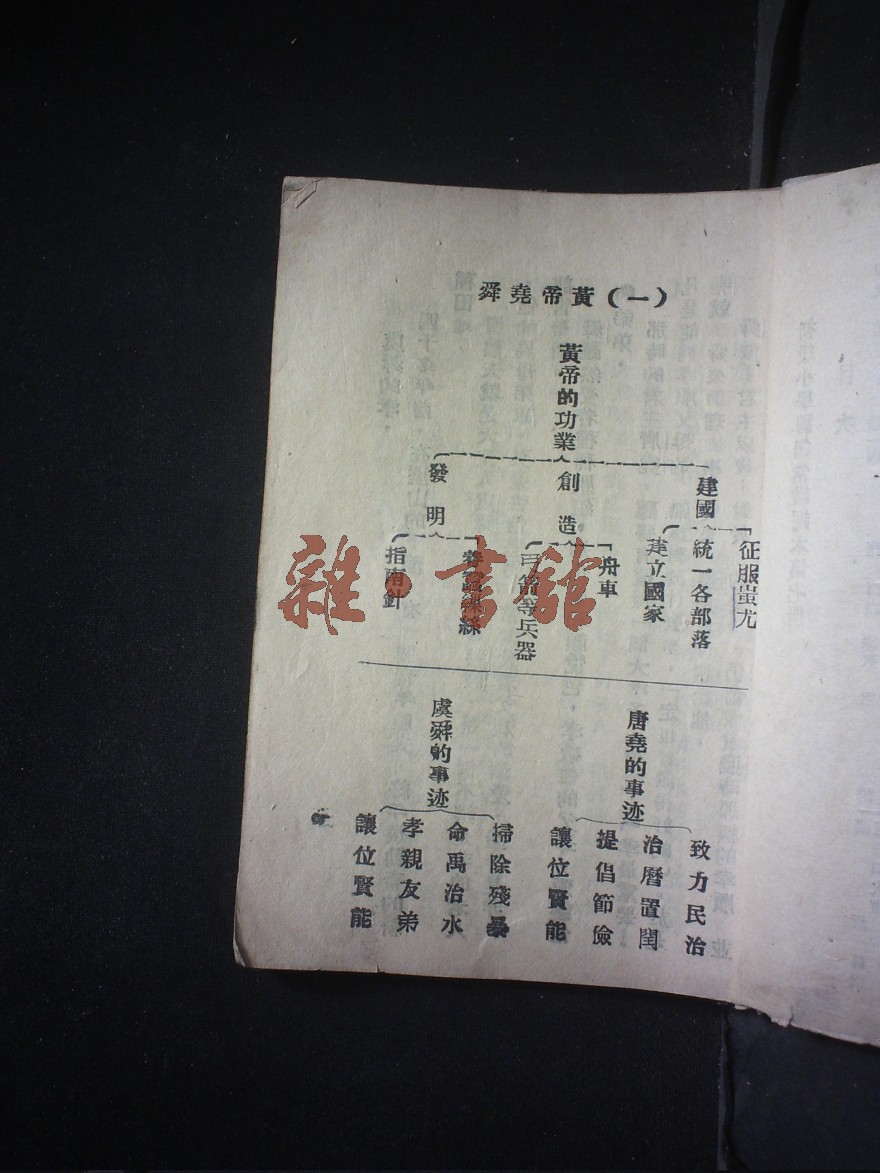 (一)黃帝堯舜
黃帝的功業
建國
征服蚩尤
統一各部落
建立國家
創造
舟車
弓箭等兵器
發明
養蠶繅絲
指南針
唐堯的事迹
致力民治
治曆置閏
提倡節儉
讓位賢能
虞舜的事迹
掃除殘暴
命禹治水
孝親友弟
讓位賢能
雜·書館